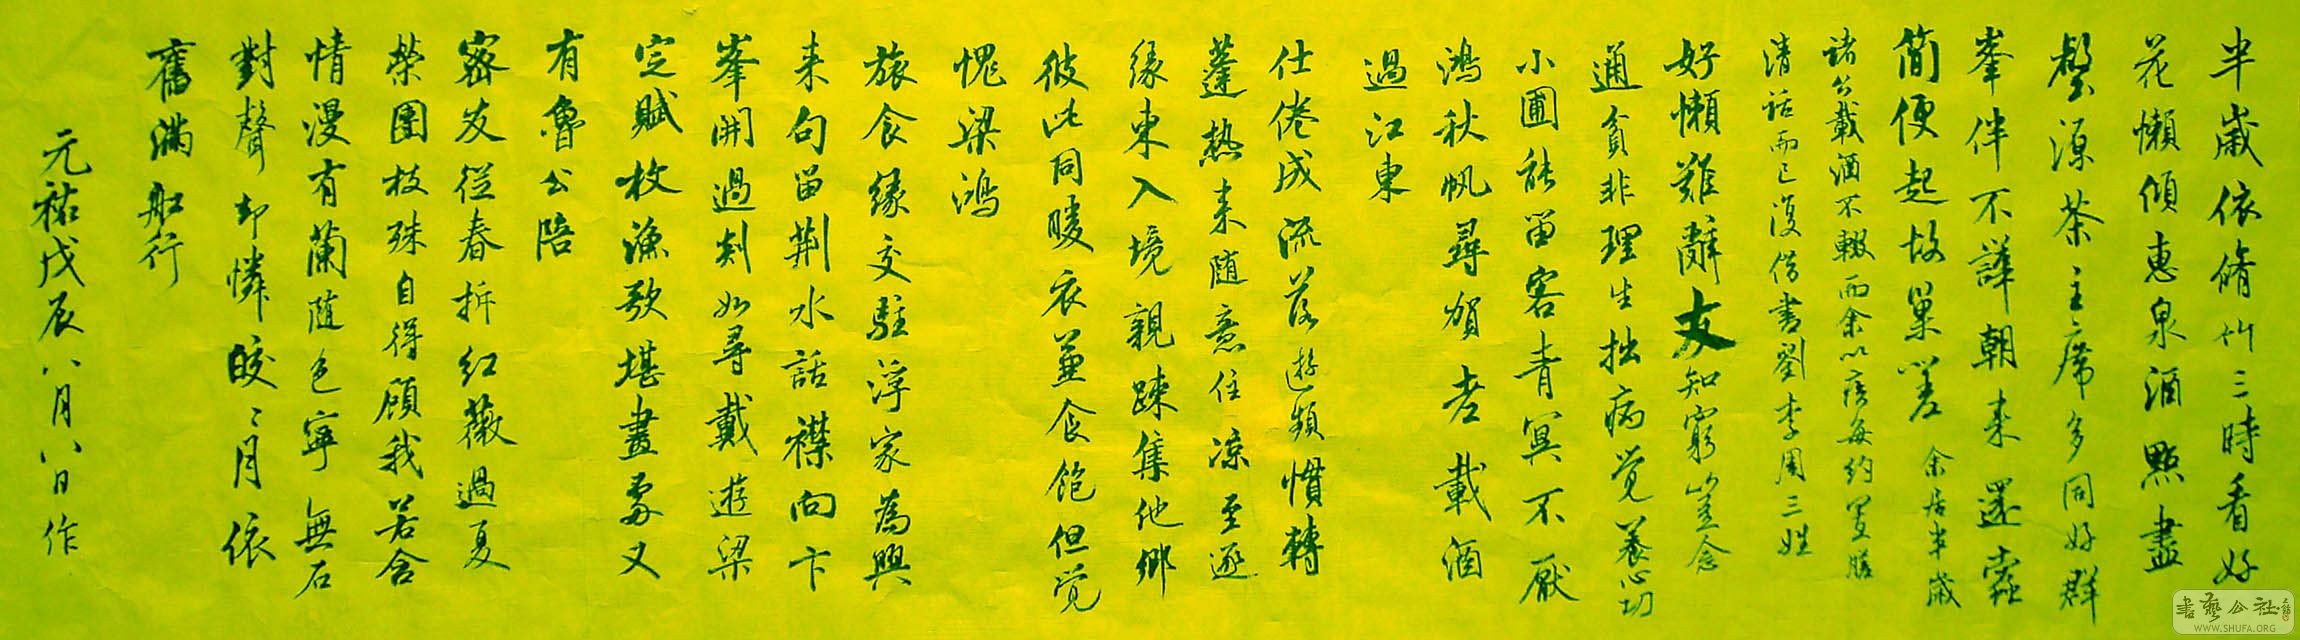 半歲依脩竹三時看好
花懶傾惠泉酒點盡
壑源茶主席多同好群
峯伴不譁朝来還蠹
簡便起故巢嗟 余居半歲
諸公載酒不輟而余以疾每約置膳
清話而已復借書劉李周三姓
好懶難辭友知窮豈念
通貧非理生拙病覺養心功
小圃能留客青冥不厭
鴻秋帆尋賀老載酒
過江東
仕倦成流落遊頻慣轉
蓬熱来随意住凉至逐
緣東入境親踈集他鄉
彼此同暖衣兼食飽但覺
愧梁鴻
旅食緣交駐浮家為興
来句留荆水話襟向卞
峯開過剡如尋戴遊梁
定賦枚漁歌堪畫處又
有魯公陪
密友從春拆紅薇過夏
榮團枝殊自得顧我若含
情漫有蘭随色寧無石
對聲却憐皎〻月依
舊滿舡行
元祐戊辰八月八日作
書藝公社
WWW.SHUFA.ORG